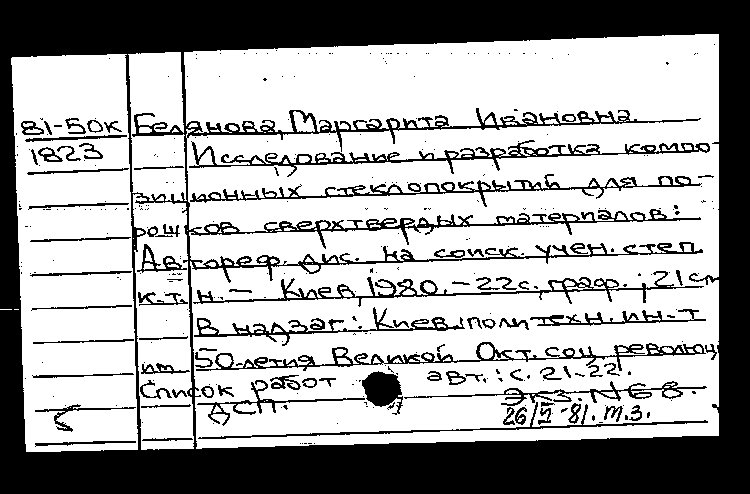 81-50к Белянова, Маргарита Ивановна.
1823 Исследование и разработка компо-
зиционных стеклопокрытий для по-
рошков сверхтвердых материалов:
Автореф. дис. на соиск. учен. степ.
к.т.н. - Киев, 1980. - 22 с., граф.; 21 см
В надзаг.: Киев. политехн. ин-т
им. 50-летия Великой Окт. соц. революци
Список работ авт.: с. 21-22.
ДСП. Экз. N 68.
26/V-81. т.з.